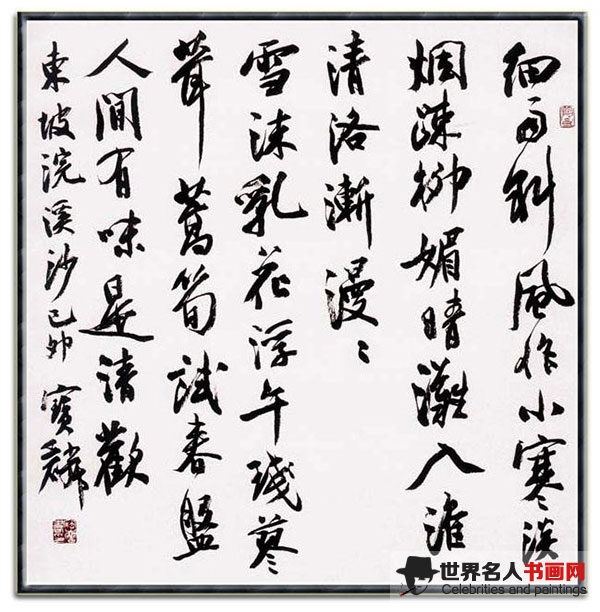 细雨斜风作小寒淡
烟疎柳媚晴灘入淮
清洛漸漫〻
雪沫乳花浮午琖蓼
茸蒿筍試春盤
人間有味是清歡
東坡浣溪沙己卯寶麟
世界名人书画网
Celebrities and paintings